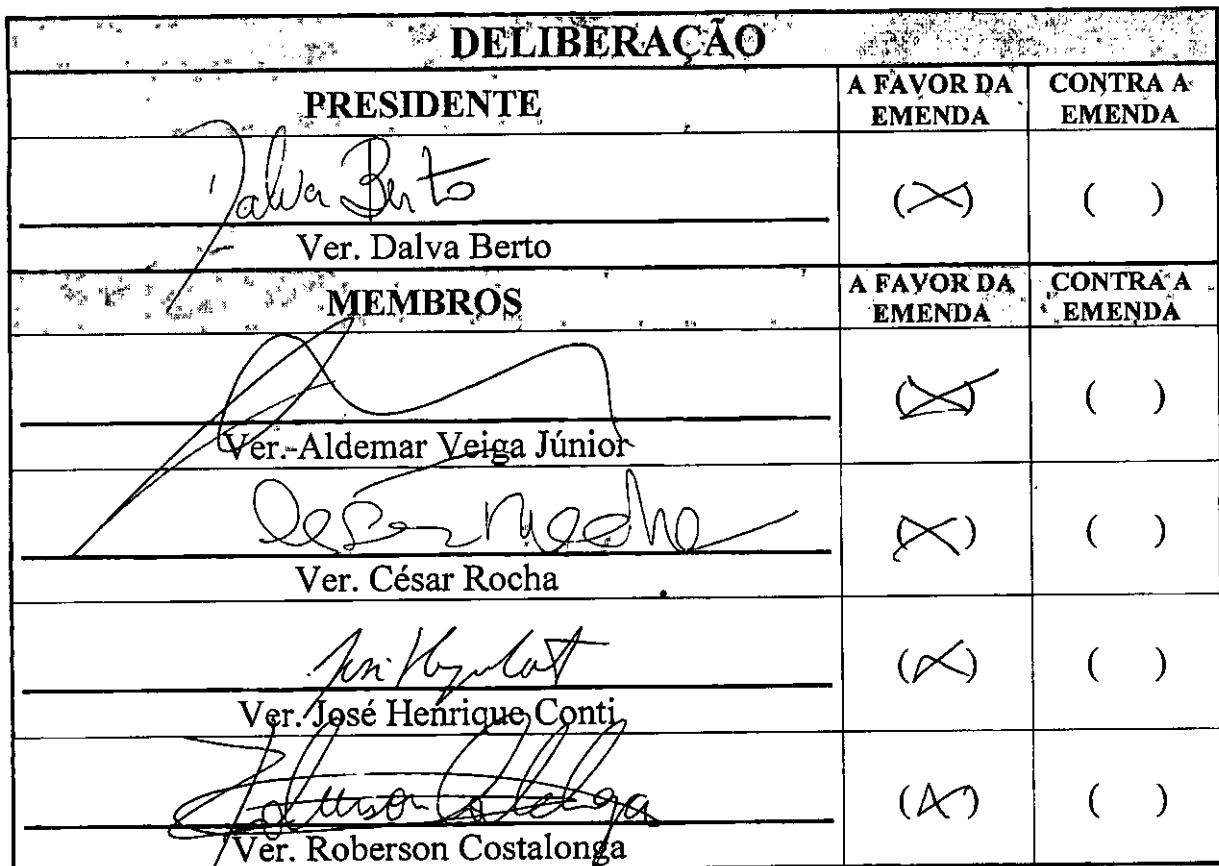 DELIBERAÇÃO
PRESIDENTE A FAVOR DA EMENDA CONTRA A EMENDA
Dalva Berto (X) ( )
Ver. Dalva Berto
MEMBROS A FAVOR DA EMENDA CONTRA A EMENDA
(X) ( )
Ver. Aldemar Veiga Júnior
(X) ( )
Ver. César Rocha
(X) ( )
Ver. José Henrique Conti
Roberson Costalonga (X) ( )
Ver. Roberson Costalonga